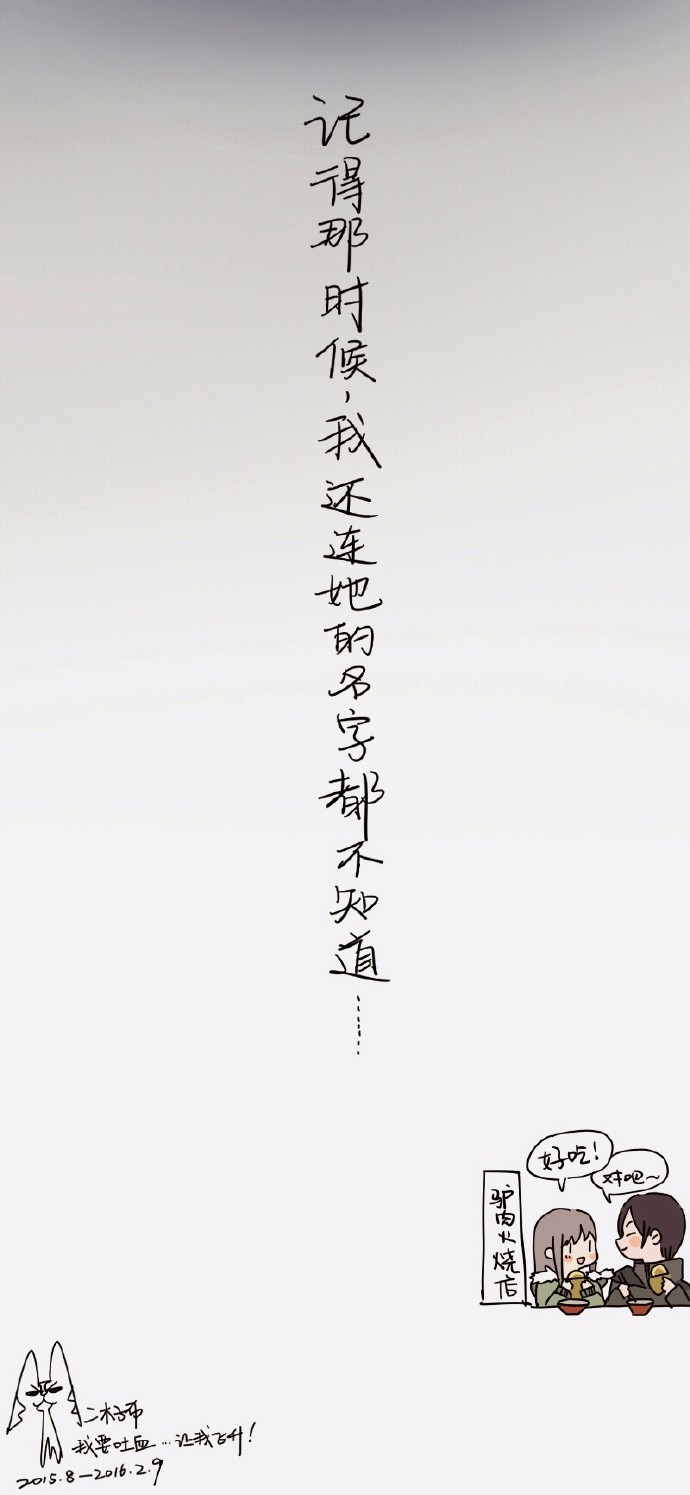 记得那时候，我还连她的名字都不知道……
好吃！
对吧～
驴肉火烧店
二木子币
我要吐血…让我飞升！
2015.8—2016.2.9